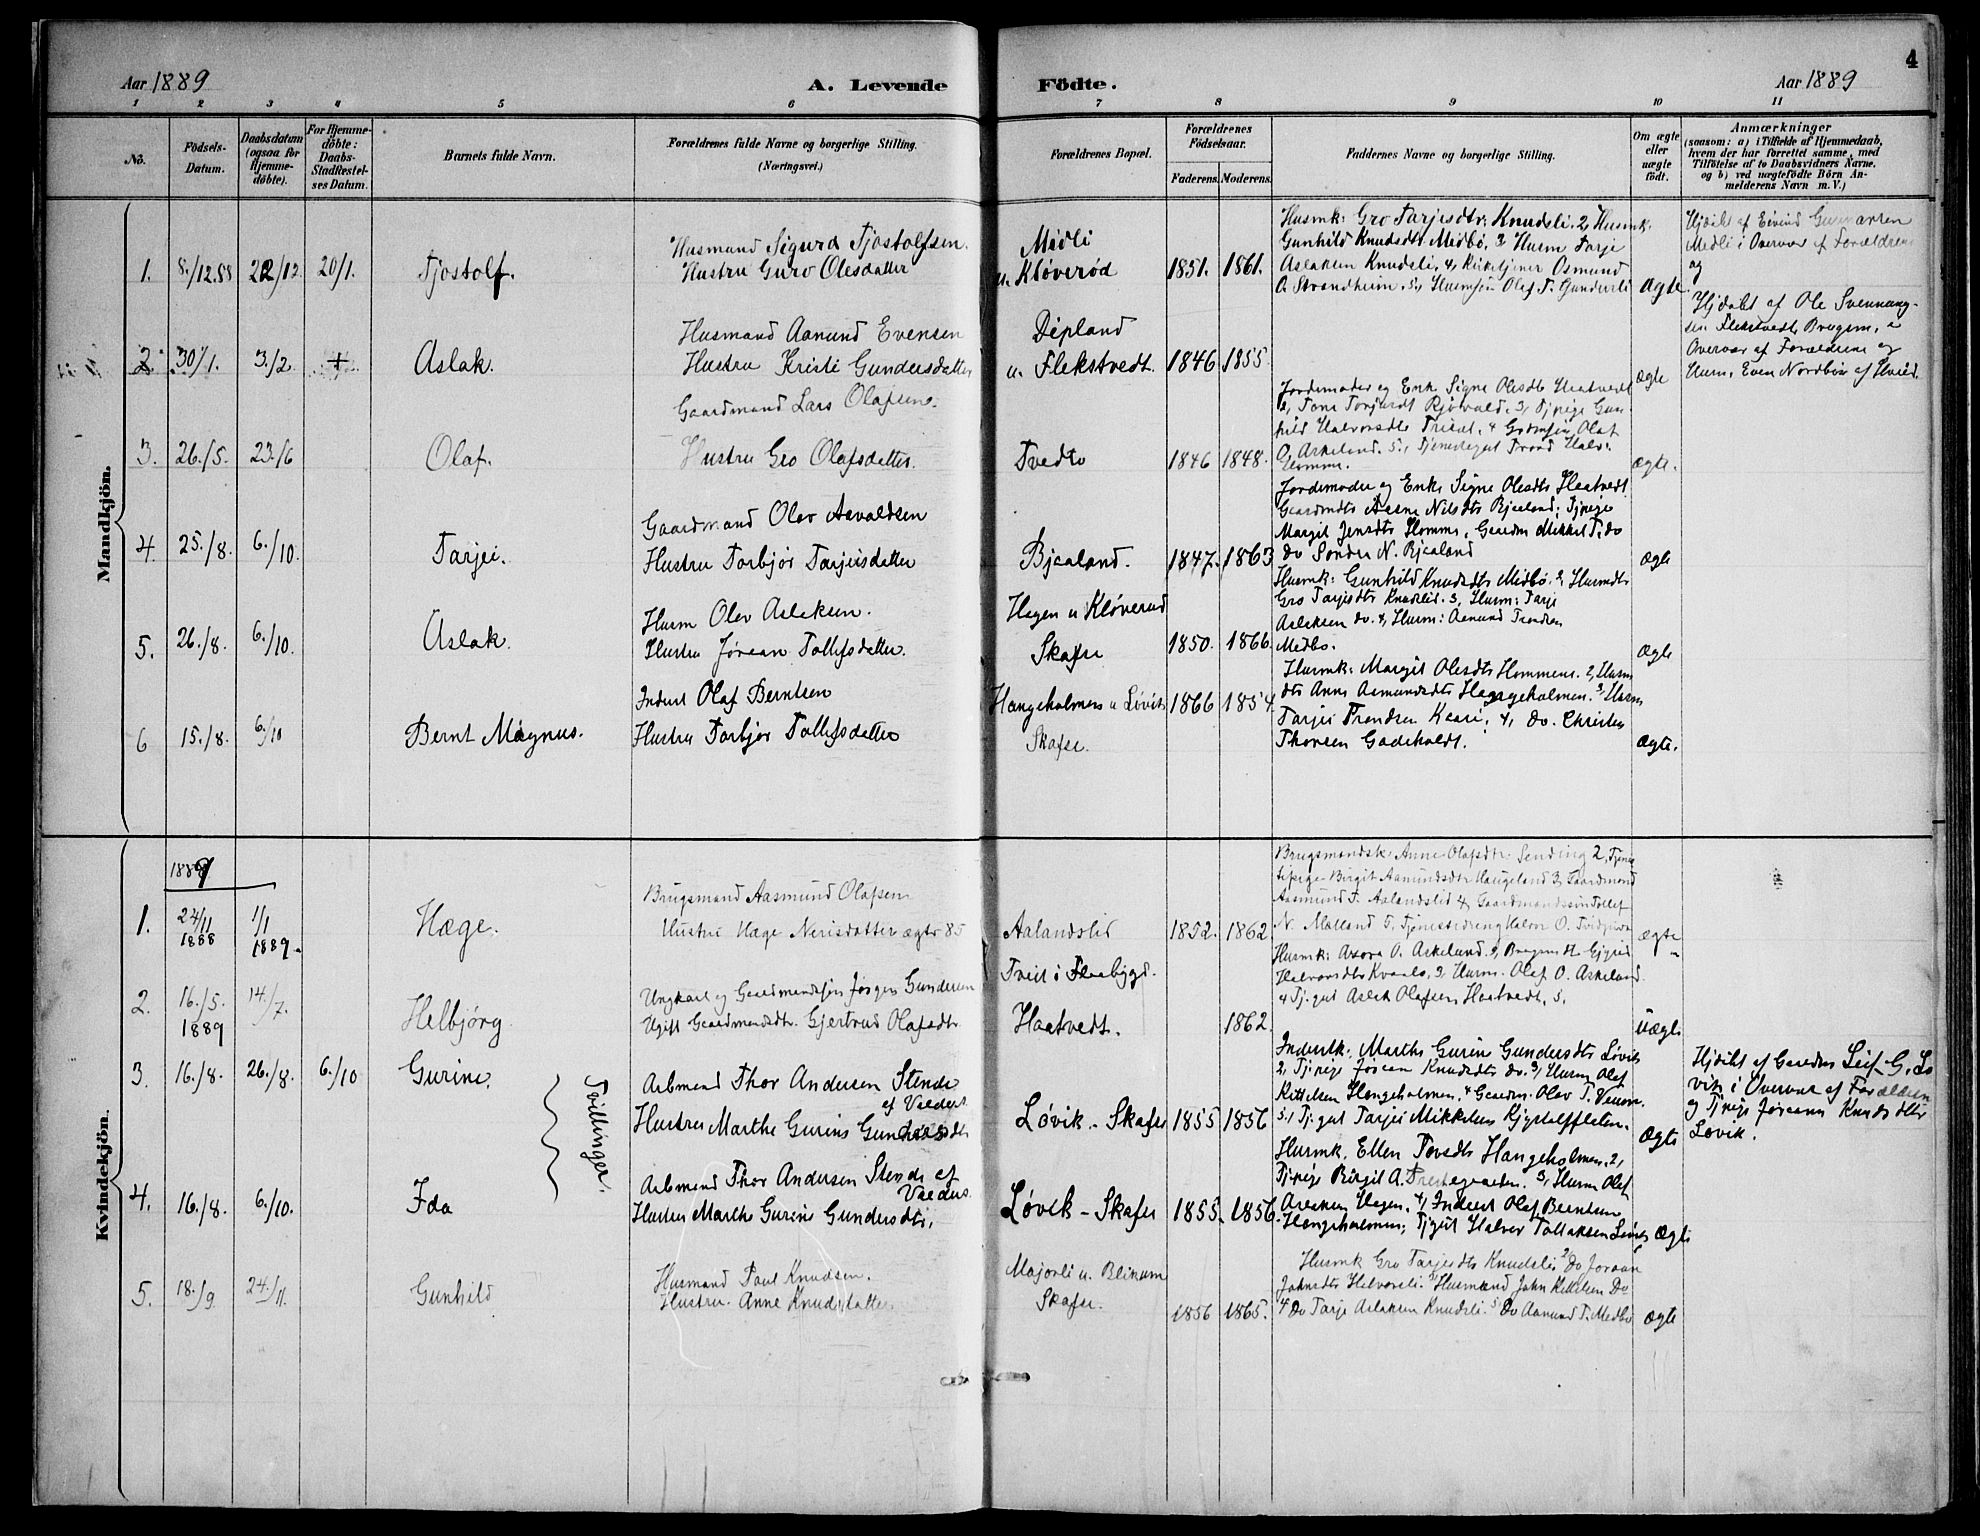 4
Aar 1889
A. Levende
Födte.
Aar 1889
1 2 3 4 5 6 7 8 9 10 11
No.
Födsels-Datum.
Daabsdatum (ogsaa for Hjemme-döbte).
For Hjemme-döbte: Daabs-Stadfestel-ses Datum.
Barnets fulde Navn.
Forældrenes fulde Navne og borgerlige Stilling.
(Næringsvei.)
Forældrenes Bopæl.
Forældrenes Födselsaar.
Faderens. Moderens.
Faddernes Navne og borgerlige Stilling.
Om ægte eller uægte födt.
Anmærkninger
(saasom: a) i Tilfælde af Hjemmedaab,
hvem der har forrettet samme, med
Tilföielse af to Daabsvidners Navne.
og b) ved uægtefödte Börn An-
melderens Navn m. V.)
Mandkjön.
1. 8./12.88 22/12 20/1. Tjostolf.
Husmand Sigurd Tjostolfsen.
Hustru Guro Olesdatter
Midli
u. Kløverød
1851. 1861.
Husmk: Gro Tarjesdtr: Knudsli, 2, Husmk.
Gunhild Knudsdtr Midbø, 3, Husm Tarje
Aslaksen Knudsli, 4, Kirketjener Osmund
O. Strandheim. 5, Husmsøn Olef T. Gunderli
Ægte.
Hjdøbt af Eivind
Medli i Overvær af Forældrene
og
2. 30/1. 3/2. + Aslak.
Husmand Aanund Evensen
Hustru Kristi Gundersdatter
Dipland
u. Flekstvedt.
1846 1855
Ægte
Hjdøbt af Ole Svennung-
sen Flekstvedt, Brugsm, i
Overvær af Forældrene og
Husm. Even Nordbø af Hvid.
3. 26./5. 23./6 Olaf.
Gaardmand Lars Olafsen.
Hustru Gro Olafsdatter.
Tvedto
1846 1848.
Jordemoder og Enke Signe Olesdtr Haatvedt
O. Askeland. 5,
Ægte.
4. 25./8. 6./10. Tarjei.
Gaardmand Olav Aavaldsen
Hustru Torbjør Tarjeisdatter
Bjaaland.
1847. 1863
Jordemoder og Enke Signe Olesdtr Haatvedt
Gaardmdtr Aasne Nilsdtr Bjaaland; Tjpige
Margit Jensdtr Homme, Gaardm Mikkel T. do
do Sondre N. Bjaaland
Ægte
5. 26./8. 6./10. Aslak.
Husm Olav Aslaksen.
Hustru Jøraan Tollefsdatter.
Hagen u Kløverud
Skafse
1850. 1866.
Husmk: Gunhild Knudsdtr Midbø. 2, Husmdtr
Gro Tarjesdtr Knudslid. 3, Husm: Tarje
Aslaksen do. 4, Husm: Aanund Trondsen
Medbø.
Ægte
6 15./8. 6/10 Bernt Magnus.
Inderst Olaf Berntsen
Hustru Torbjør Tollefsdatter
Hangeholmen u Løvik
Skafse.
1866 1854.
Husmk: Margit Olesdtr Hommen. 2, Husm
dtr Anne Aamundsdtr Hangeholmen. 3, Husm
Tarjei Trondsen Kaasi, 4, do. Christen
Thorsen Gadeholdt.
Ægte.
Kvindekjön.
1889
1. 24/11 1888 1/1 1889. Hæge.
Brugsmand Aasmund Olafsen
Hustru Hæge Nerisdatter ægtv 85
Aalandslid
1852. 1862
Brugsmandsk: Anne Olafsdtr. Sending 2, Tjene-
stepige Birgit Aamundsdtr Haugeland 3, Gaardmand
Aasmund T. Aalandslid 4, Gaardmandssøn Tollef
N. Midland 5, Tjenestedreng Halvor O.
Ægte
2. 16./5. 1889 14./7. Helbjørg
Ungkarl og Gaardmandssøn Jørgen Gundersen
Ugift Gaardmandsdtr. Gjertrud Olafsdtr
Tveit i Flaabygd.
Haatvedt.
1862.
Husmk: Aasne O. Askeland. 2,
Halvorsdtr Kvaale, 3, Husm. Olaf O. Askeland.
4 Tj.gut Aslak Olafsen Haatvedt. 5.
Uægte
3. 16./8. 26./8. 6./10 Gurine.
Tvillinger.
Arbmand Thor Andersen Stende
af Valders
Hustru Marthe Gurine Gundersdtr
Løvik - Skafse
1855 1856
Inderstk: Marthe Gurine Gundersdtr Løvik
2, Tjpige Jøraan Knudsdtr do. 3, Husm Olaf
Kittilsen Hangeholmen. 4 Gaardm: Olav T. Venum.
5, Tj.gut Tarjei Mikkelsen
Ægte
Hjdøbt af Gaardm Leif G. Lø
vik i Overvær af Forældrene
og Tjpige Jøraann Knudsdtr
Løvik.
4. 16./8. 6./10. Ida
Arbmand Thor Andersen Stende af
Valders.
Hustru Marthe Gurine Gundersdtr.
Løvik - Skafse
1855. 1856.
Husmk. Ellen Torsdtr Hangeholmen, 2,
Tjpige Birgit A. Prestegaarden. 3, Husm Olaf
Aslaksen Hagen. 4, Inderst Olaf Berntsen
Hangeholmen; Tjgut Halvor Tollaksen Løvik
Ægte
5. 18./9 24./11. Gunhild
Husmand Paul Knudsen.
Hustru. Anne Knudsdatter
Majorli u. Blikum
Skafse.
1856 1865.
Husmk Gro Tarjesdtr Knudsli 2 Do Joraan
Johnsdtr Halvorsli. 3 Husmand John Kittilsen Do
4 Do Tarje Aslaksen Knudsli. 5 Do Aanund T. Medbø
Ægte